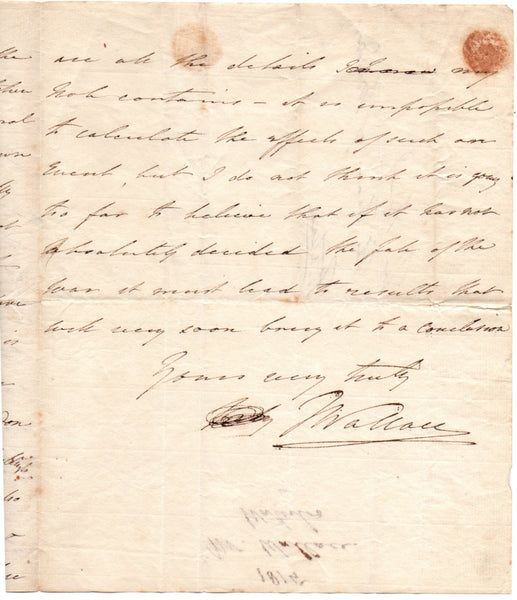 are all the details I know my
Note contains – it is impossible
to calculate the effects of such an
Event, but I do not think it is going
too far to believe that if it has not
absolutely decided the fate of the
War it must lead to results that
will very soon bring it to a conclusion
Yours very truly
TWallace
Mr. Wallace
1815